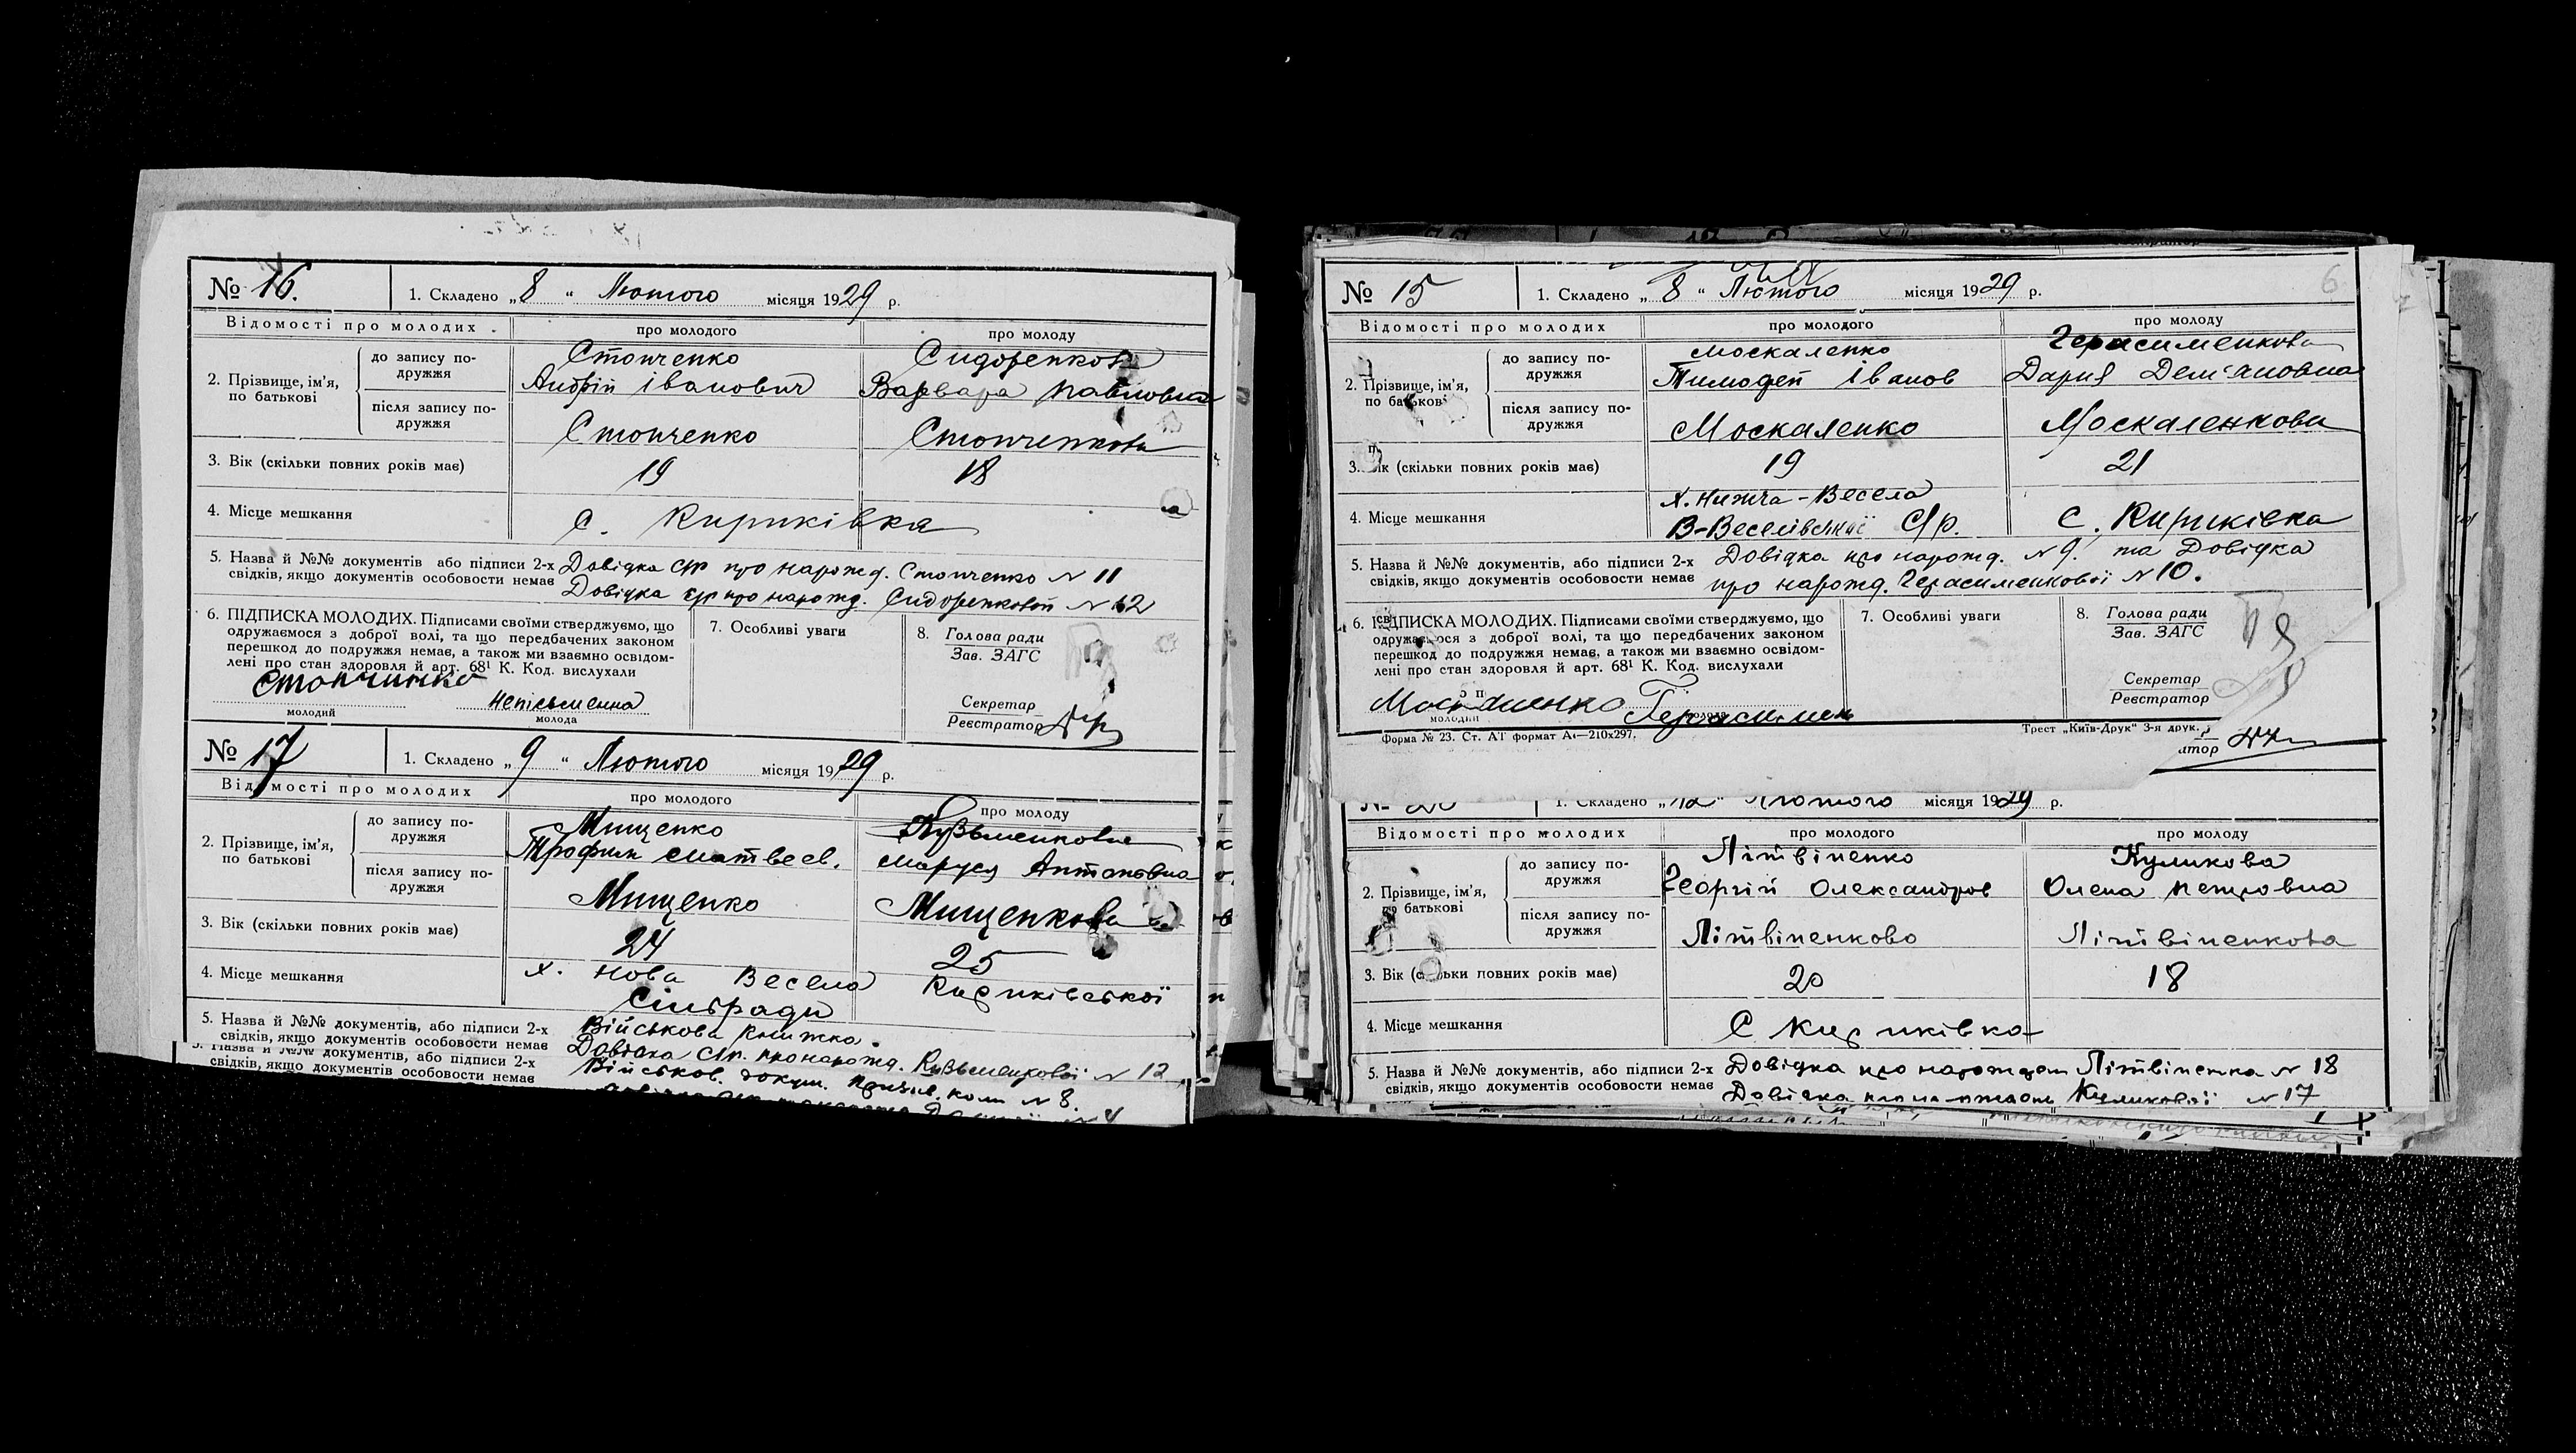 № 16.
1. Складено „8“ Лютого місяця 1929 р.
Відомості про молодих
про молодого
про молоду
2. Прізвище, ім'я, по батькові
до запису по-
дружжя
Стопченко
Андрій Іванович
Сидоренкова
Варвара Павловна
після запису по-
дружжя
Стопченко
Стопченкова
3. Вік (скільки повних років має)
19
18
4. Місце мешкання
с. Кириківка
5. Назва й №№ документів або підписи 2-х
свідків, якщо документів особовости немає
Довідка С/р про нарожд. Стопченко N 11
Довідка с/р про нарожд. Сидоренковой N 12
6. ПІДПИСКА МОЛОДИХ. Підписами своїми стверджуємо, що
одружаємося з доброї волі, та що передбачених законом
перешкод до подружжя немає, а також ми взаємно освідом-
лені про стан здоровля й арт. 68¹ К. Код. вислухали
Стопчинко
молодий
Непісьменна
молода
7. Особливі уваги
8. Голова ради
Зав. ЗАГС
Секретар
Реєстратор
№ 17
1. Складено „9“ Лютого місяця 1929 р.
Відомості про молодих
про молодого
про молоду
2. Прізвище, ім'я,
по батькові
до запису по-
дружжя
Мищенко
Трофим Матвеев.
Кузьменкова
Маруся Антоновна
після запису по-
дружжя
Мищенко
Мищенкова
3. Вік (скільки повних років має)
24
25
4. Місце мешкання
х. Нова Весела Кириківської
Сільради
5. Назва й №№ документів, або підписи 2-х
свідків, якщо документів особовости немає
Військова Книжка.
Довідка С/р. про нарожд. Кузьменкової N 12
документів, або підписи 2-х
свідків, якщо документів особовости немає
Військов. докум. N 8.
№ 15
1. Складено „8“ Лютого місяця 1929 р.
6
Відомості про молодих
про молодого
про молоду
2. Прізвище, ім'я,
по батькові
до запису по-
дружжя
Москаленко
Тимофей Іванов
Герасименкова
Дария Дем'яновна
після запису по-
дружжя
Москаленко
Москаленкова
3. Вік (скільки повних років має)
19
21
4. Місце мешкання
х. Нижча-Весела
В-Веселівської С/р.
с. Кириківка
5. Назва й №№ документів, або підписи 2-х
свідків, якщо документів особовости немає
Довідка про нарожд. N 9. та Довідка
про нарожд. Герасименкової N 10.
6. ПІДПИСКА МОЛОДИХ. Підписами своїми стверджуємо, що
одружаємося з доброї волі, та що передбачених законом
перешкод до подружжя немає, а також ми взаємно освідом-
лені про стан здоровля й арт. 68¹ К. Код. вислухали
Москаленко
молодий
Герасимен
7. Особливі уваги
8. Голова ради
Зав. ЗАГС
Секретар
Реєстратор
Форма № 23. Ст. АТ формат А4—210х297.
Трест „Київ-Друк“ 3-я друк.
атор
1. Складено „12“ Лютого місяця 1929 р.
Відомості про молодих
про молодого
про молоду
2. Прізвище, ім'я,
по батькові
до запису по-
дружжя
Літвіненко
Георгій Олександров
Куликова
Олена Петровна
після запису по-
дружжя
Літвіненково
Літвіненкова
3. Вік (скільки повних років має)
20
18
4. Місце мешкання
С Кириківка
5. Назва й №№ документів, або підписи 2-х
свідків, якщо документів особовости немає
Довідка про нарожден Літвіненка N 18
Довідка Куликової N 17